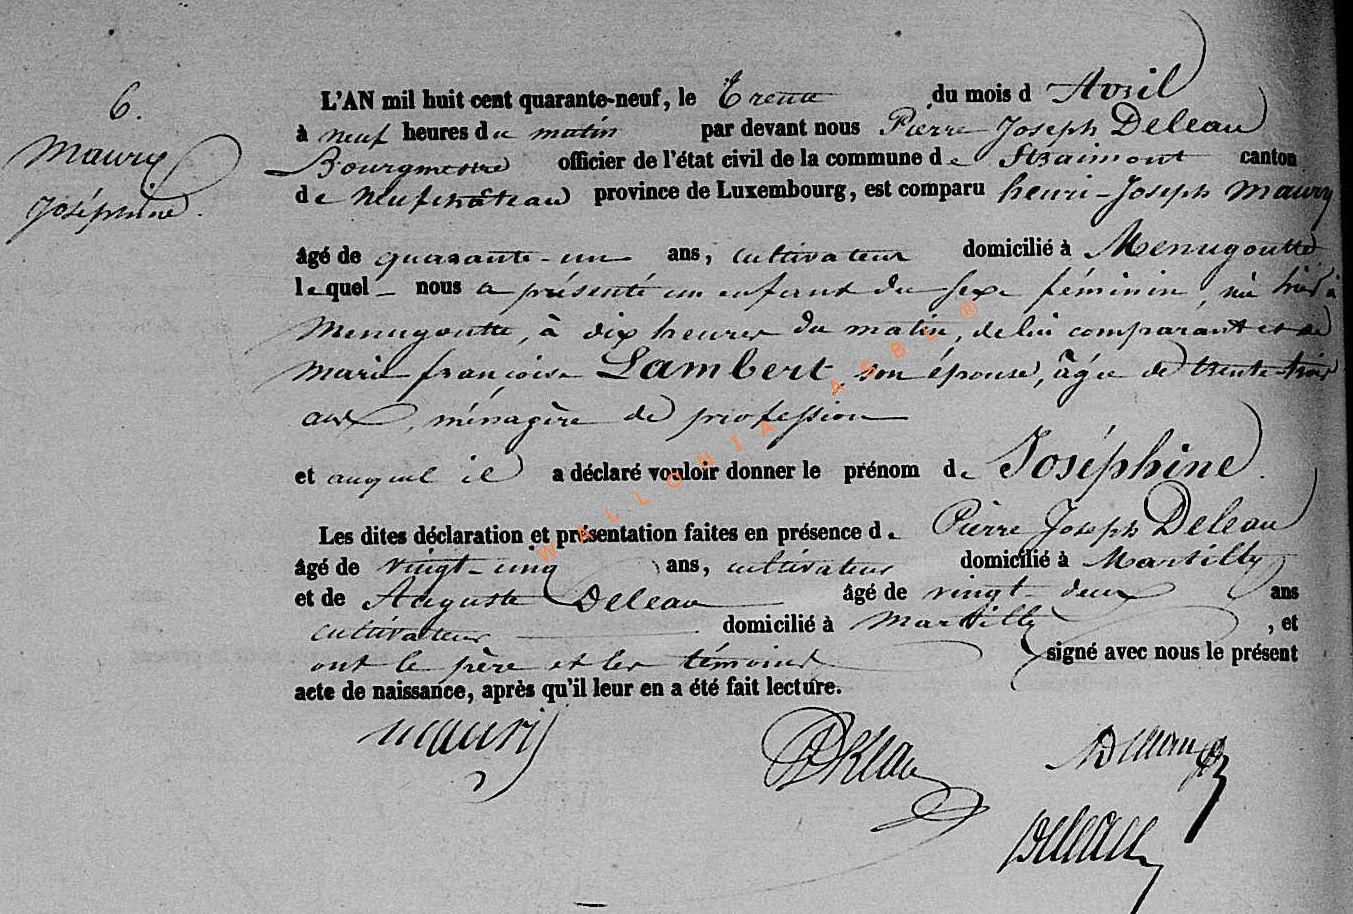 6.
Maury
Joséphine.
L'AN mil huit cent quarante-neuf, le Trente du mois d'Avril
à neuf heures du matin par devant nous Pierre Joseph Deleau
Bourgmestre officier de l'état civil de la commune de Straimont canton
de Neufchâteau province de Luxembourg, est comparu henri-Joseph Maury
âgé de quarante-un ans, cultivateur domicilié à Menugoutte
lequel nous a présenté un enfant du sexe féminin, née hier à
Menugoutte, à dix heures du matin, de lui comparant et de
Marie françoise Lambert, son épouse, âgée de trente-trois
ans, ménagère de profession
et auquel il a déclaré vouloir donner le prénom de Joséphine.
Les dites déclaration et présentation faites en présence de Pierre Joseph Deleau
âgé de vingt-cinq ans, cultivateur domicilié à Martilly
et de Auguste Deleau âgé de vingt-deux ans
cultivateur domicilié à Martilly, et
ont le père et les témoins signé avec nous le présent
acte de naissance, après qu'il leur en a été fait lecture.
Maury Deleau Deleau
Deleau
WALLONIA ASBL ®